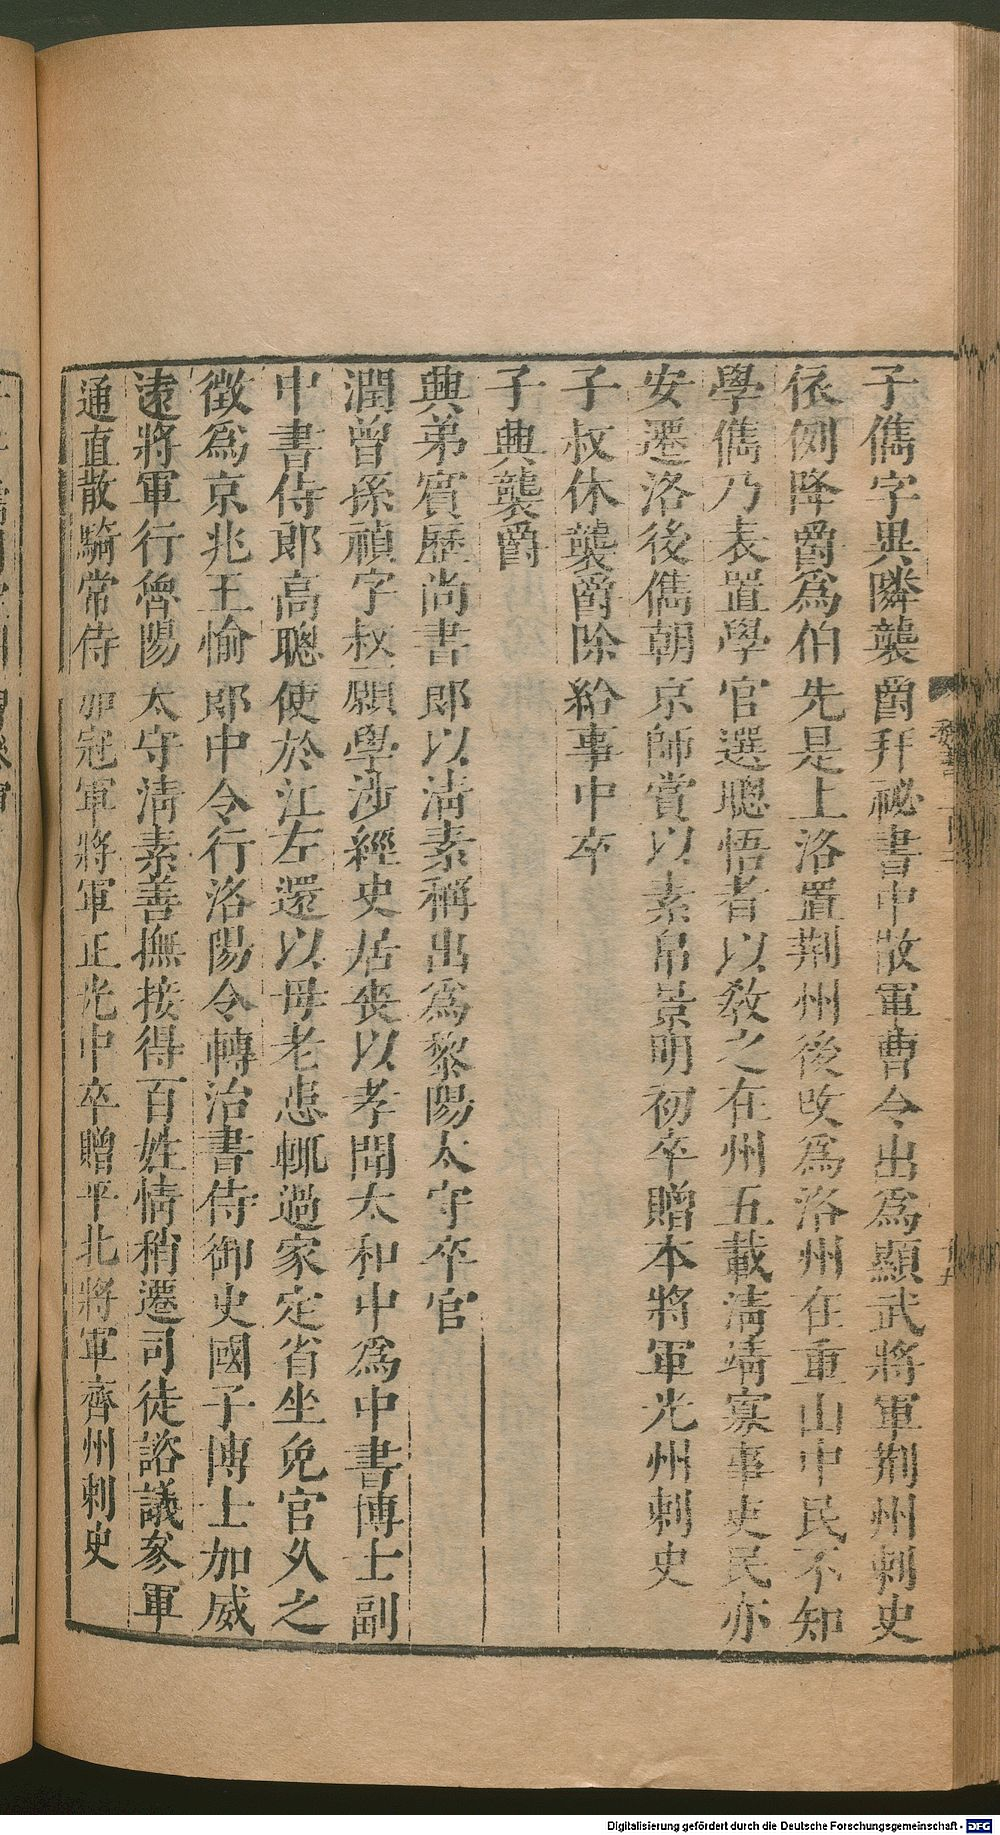 子儁字異隣襲爵拜祕書中散軍曹令出爲顯武將軍荆州刺史
依例降爵爲伯先是上洛置荆州後改爲洛州在重山中民不知
學儁乃表置學官選聰悟者以敎之在州五載淸靖寡事吏民亦
安遷洛後儁朝京師賞以素帛景明初卒贈本將軍光州刺史
子叔休襲爵除給事中卒
子典襲爵
典弟賓歷尚書郎以淸素稱出爲黎陽太守卒官
潤曾孫禎字叔願學涉經史居喪以孝聞太和中爲中書博士副
中書侍郎高聰使於江左還以母老患輒過家定省坐免官久之
徵爲京兆王愉郎中令行洛陽令轉治書侍御史國子博士加威
遠將軍行魯陽太守淸素善撫接得百姓情稍遷司徒諮議參軍
通直散騎常侍加冠軍將軍正光中卒贈平北將軍齊州刺史
Digitalisierung gefördert durch die Deutsche Forschungsgemeinschaft - DFG